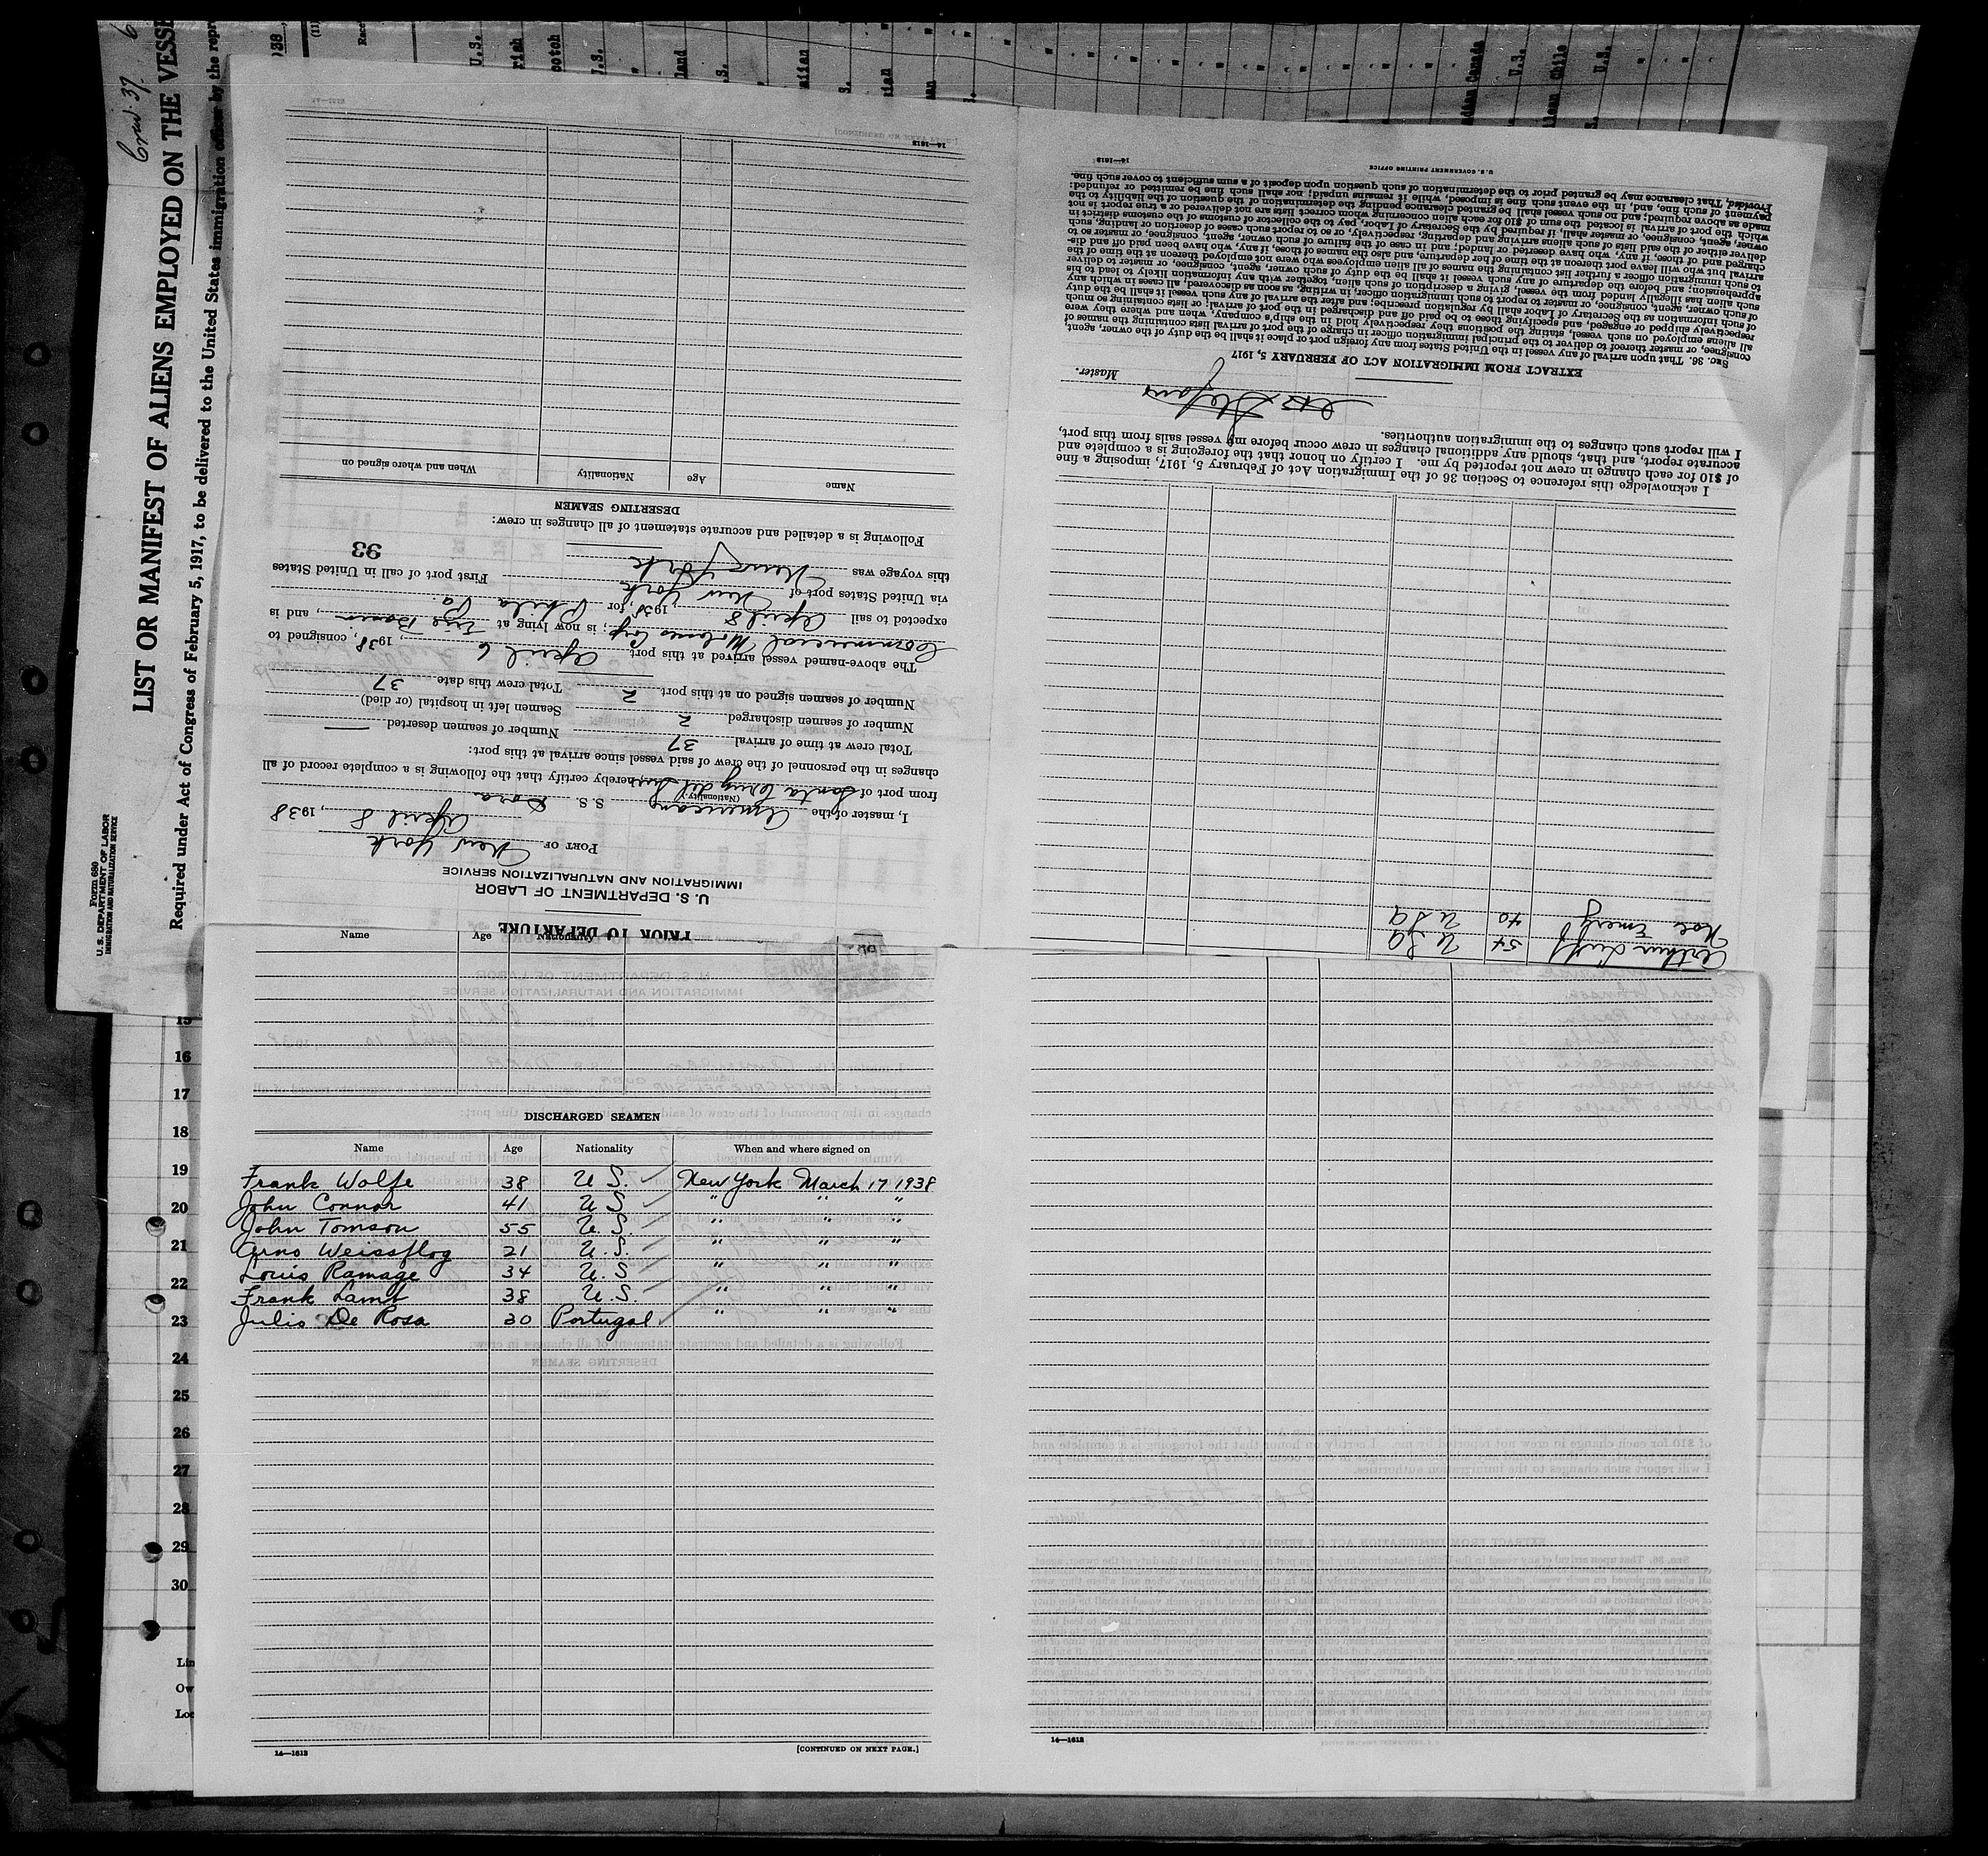 Form 680
U.S. DEPARTMENT OF LABOR
IMMIGRATION AND NATURALIZATION SERVICE
LIST OR MANIFEST OF ALIENS EMPLOYED ON THE VESSE
Required under Act of Congress of February 5, 1917, to be delivered to the United States immigration officer by the repr
PRIOR TO DEPARTURE
U. S. DEPARTMENT OF LABOR
IMMIGRATION AND NATURALIZATION SERVICE
PORT OF New York
April 8, 1938
I, master of the American S. S. Dora
(Nationality)
from port of Santa Cruz del Sur, hereby certify that the following is a complete record of all
changes in the personnel of the crew of said vessel since arrival at this port:
Total crew at time of arrival 37 Number of seamen deserted —
Number of seamen discharged 2 Seamen left in hospital (or died)
Number of seamen signed on at this port 2 Total crew this date 37
The above-named vessel arrived at this port April 6, 1938, consigned to
Commercial Molasses Corp; is now lying at Erie Basin, and is
expected to sail April 8, 1938, for Phila Pa.
via United States port of New York First port of call in United States
this voyage was New York
93
Following is a detailed and accurate statement of all changes in crew:
DESERTING SEAMEN
Name Age Nationality When and where signed on
14—1613
Arthur 54 U S A
Noe Emery 40 U S A
I acknowledge this reference to Section 36 of the Immigration Act of February 5, 1917, imposing a fine
of $10 for each change in crew not reported by me. I certify on honor that the foregoing is a complete and
accurate report, and that, should any additional changes in crew occur before my vessel sails from this port,
I will report such changes to the immigration authorities.
Master.
EXTRACT FROM IMMIGRATION ACT OF FEBRUARY 5, 1917
SEC. 36. That upon arrival of any vessel in the United States from any foreign port or place it shall be the duty of the owner, agent,
consignee, or master thereof to deliver to the principal immigration officer in charge of the port of arrival lists containing the names of
all aliens employed on such vessel, stating the positions they respectively hold in the ship's company, when and where they were
respectively shipped or engaged, and specifying those to be paid off and discharged in the port of arrival; or lists containing so much
of such information as the Secretary of Labor shall by regulation prescribe; and after the arrival of any such vessel it shall be the duty
of such owner, agent, consignee, or master to report to such immigration officer, in writing, as soon as discovered, all cases in which any
such alien has illegally landed from the vessel, giving a description of such alien, together with any information likely to lead to his
apprehension; and before the departure of any such vessel it shall be the duty of such owner, agent, consignee, or master to deliver
to such immigration officer a further list containing the names of all alien employees who were not employed thereon at the time of the
arrival but who will leave port thereon at the time of her departure, and also the names of those, if any, who have been paid off and dis-
charged and of those, if any, who have deserted or landed; and in case of the failure of such owner, agent, consignee, or master so to
deliver either of the said lists of such aliens arriving and departing, respectively, or so to report such cases of desertion or landing, such
owner, agent, consignee, or master shall, if required by the Secretary of Labor, pay to the collector of customs of the customs district in
which the port of arrival is located the sum of $10 for each alien concerning whom correct lists are not delivered or a true report is not
made as above required; and no such vessel shall be granted clearance pending the determination of the question of the liability to the
payment of such fine, and, in the event such fine is imposed, while it remains unpaid; nor shall such fine be remitted or refunded:
Provided, That clearance may be granted prior to the determination of such question upon deposit of a sum sufficient to cover such fine.
U. S. GOVERNMENT PRINTING OFFICE
14—1613
Name Age Nationality
DISCHARGED SEAMEN
Name Age Nationality When and where signed on
Frank Wolfe 38 U S. New York March 17 1938
John Connor 41 U S " " "
John Tomson 55 U. S. " " "
Arno Weissflog 21 U. S. " " "
Louis Ramage 34 U. S " " "
Frank Lamb 38 U. S. " " "
Julio De Rosa 30 Portugal " " "
14—1613
[CONTINUED ON NEXT PAGE.]
14—1613
15
16
17
18
19
20
21
22
23
24
25
26
27
28
29
30